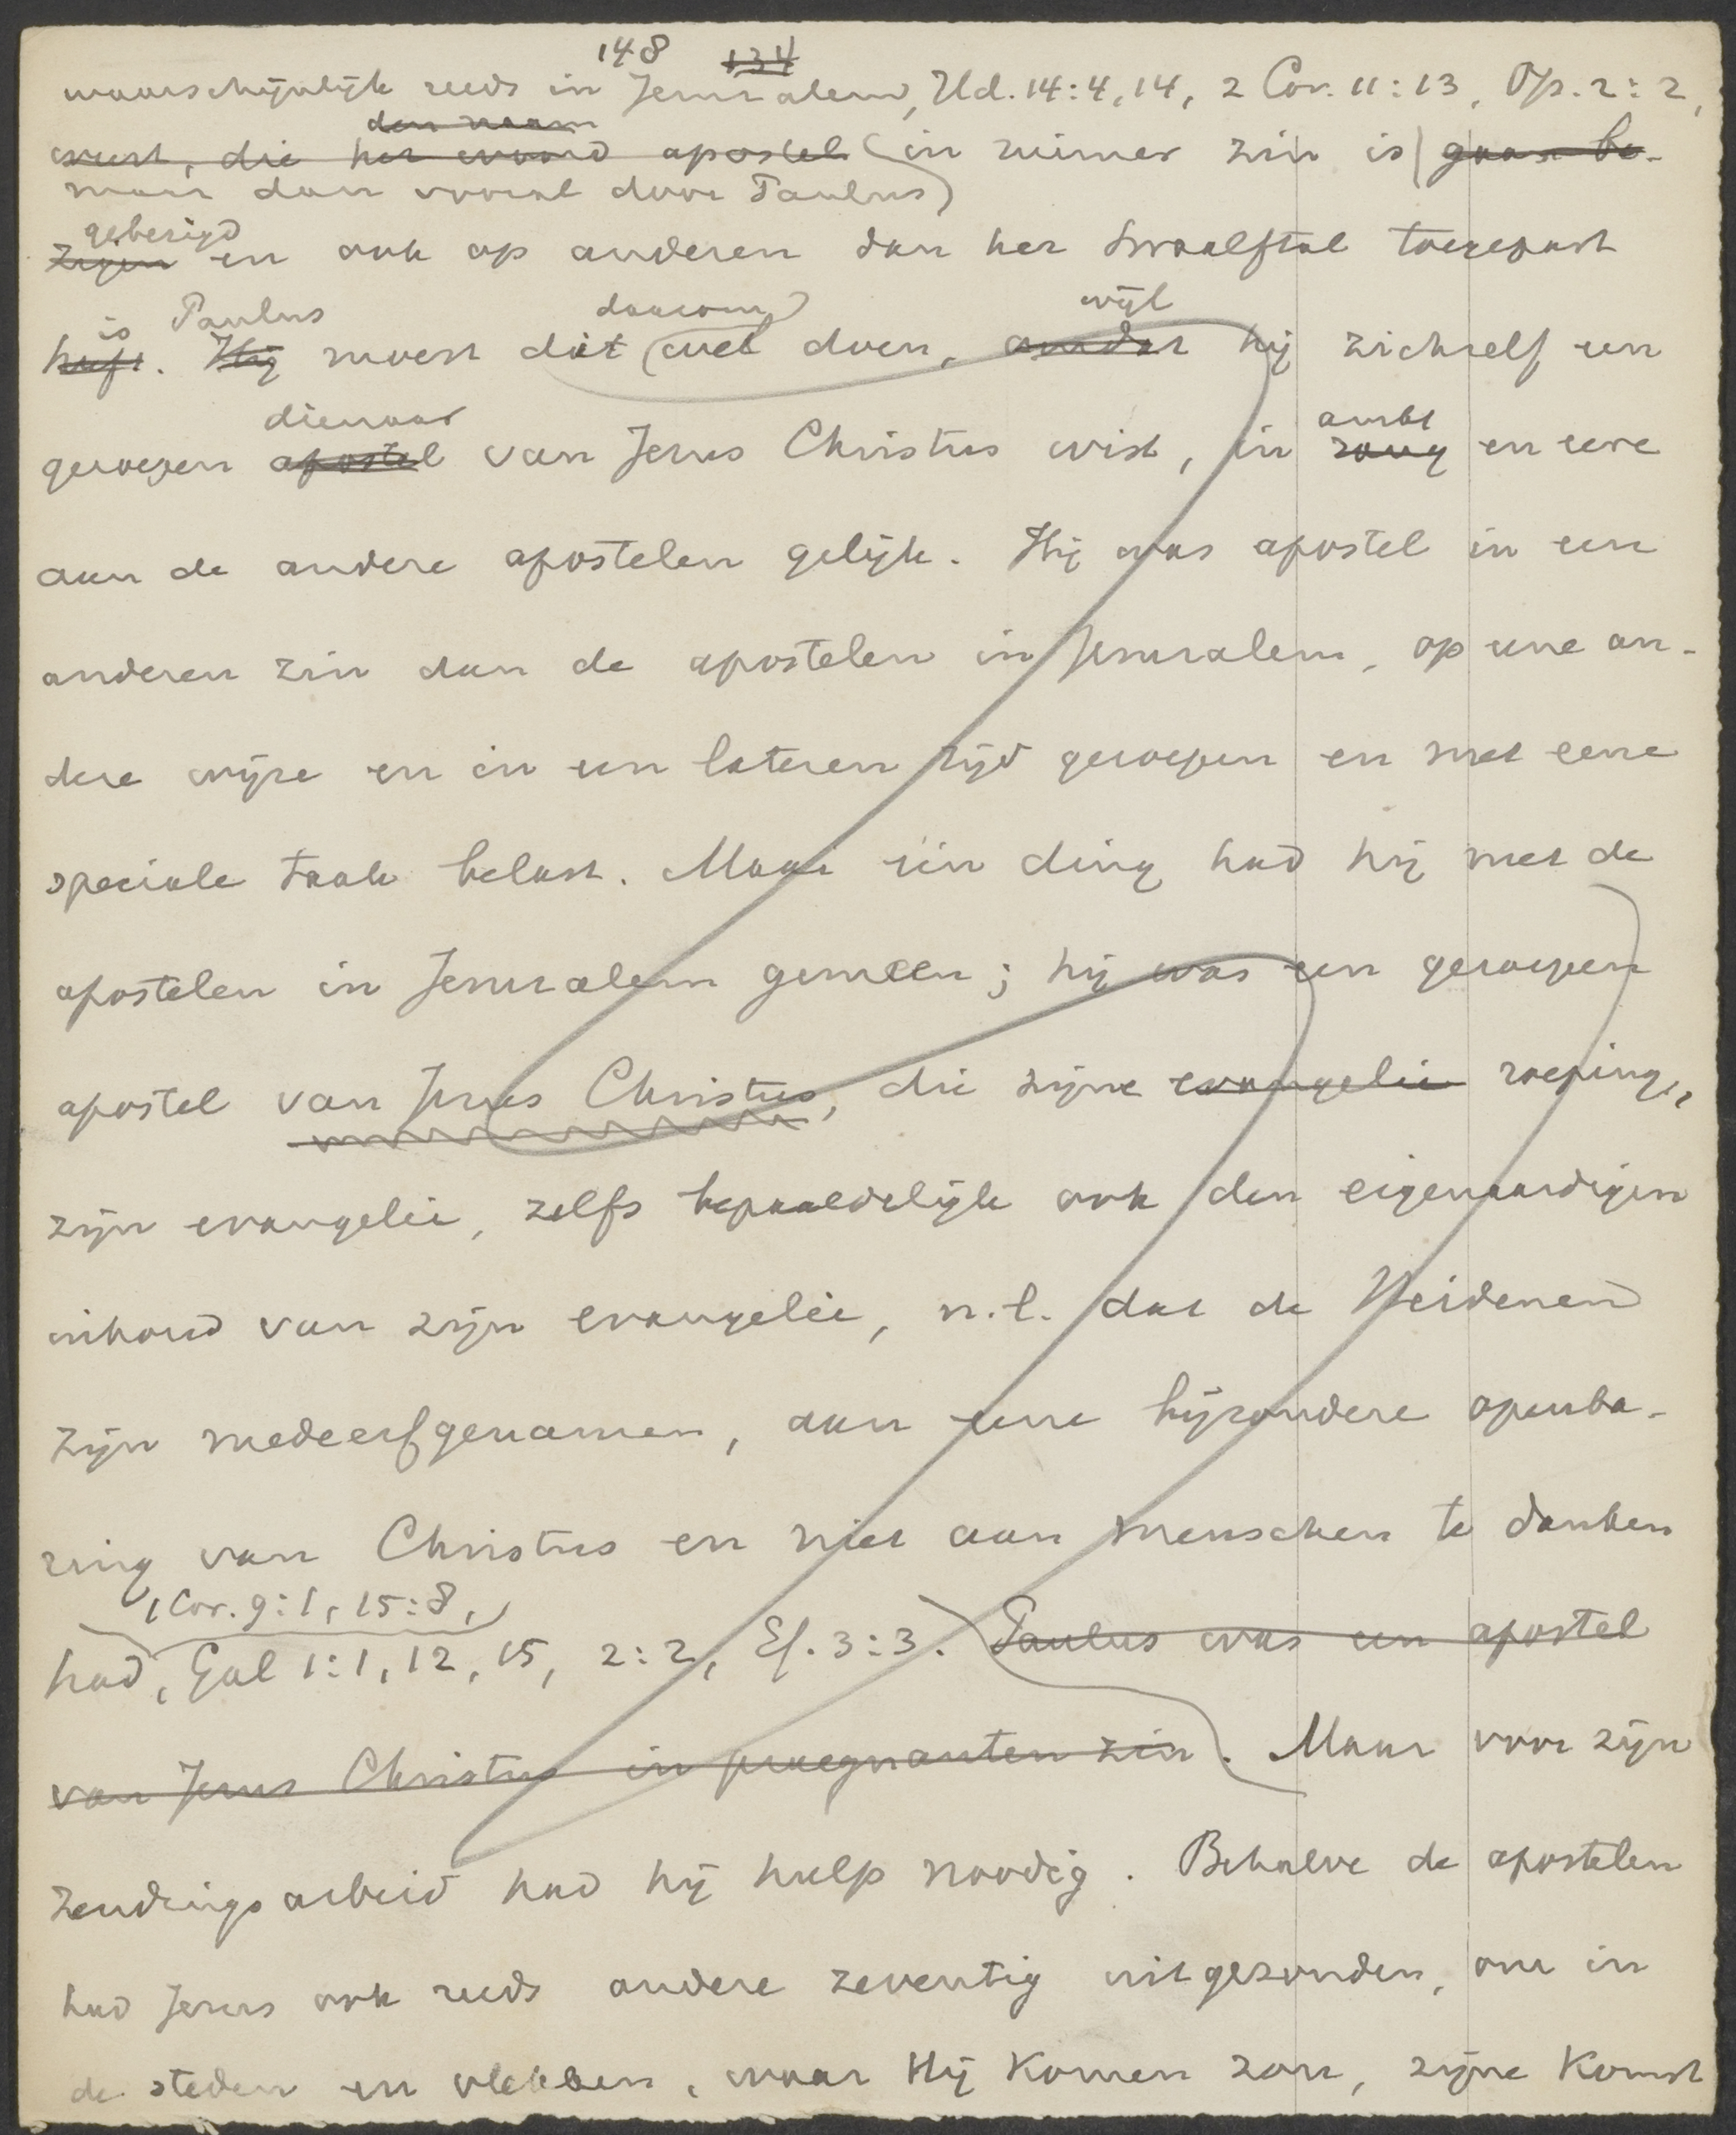 148 134
waarschijnlijk reeds in Jeruzalem, Hd. 14:4, 14, 2 Cor. 11:13, Op. 2:2,
den naam
eerst, die het woord apostel (in ruimer zin is gaan be-
maar dan vooral door Paulus)
gebezigd
zigen en ook op anderen dan het twaalftal toegepast
is Paulus daarom wijl
heeft. Hij moest dit wel doen, omdat hij zichzelf een
dienaar ambt
geroepen apostel van Jezus Christus wist, in rang en eere
aan de andere apostelen gelijk. Hij was apostel in een
anderen zin dan de apostelen in Jeruzalem, op eene an-
dere wijze en in een lateren tijd geroepen en met eene
speciale taak belast. Maar één ding had hij met de
apostelen in Jeruzalem gemeen; hij was een geroepen
apostel van Jezus Christus, die zijne evangelie roeping,
zijn evangelie, zelfs bepaaldelijk ook den eigenaardigen
inhoud van zijn evangelie, n.l. dat de Heidenen
zijn medeerfgenamen, aan eene bijzondere openba-
ring van Christus en niet aan menschen te danken
1 Cor. 9:1, 15:8,
had, Gal 1:1, 12, 15, 2:2, Ef. 3:3. Paulus was een apostel
van Jezus Christus in praegnanten zin. Maar voor zijn
zendingsarbeid had hij hulp noodig. Behalve de apostelen
had Jezus ook reeds andere zeventig uitgezonden, om in
de steden en vlekken, waar Hij komen zou, zijne komst